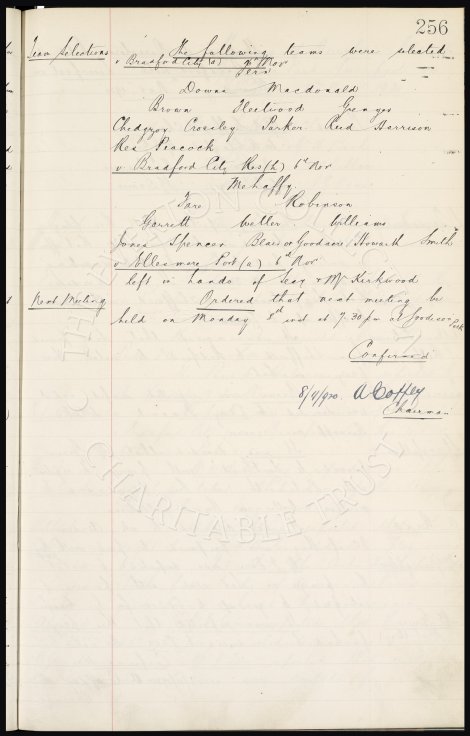 256
Team Selections The following teams were selected
v Bradford City (a) 6th Nov
Fern
Downs Macdonald
Brown Fleetwood Grenyer
Chedgzoy Crossley Parker Reid Harrison
Res Peacock
v Bradford City Res (h) 6th Nov
Mehaffy
Fare Robinson
Garrett Weller Williams
Jones Spencer Blair or Goodacre Howarth Smith
v Ellesmere Port (a) 6th Nov
left in hands of Secy & Mr Kirkwood
Next Meeting Ordered that next meeting be
held on Monday 8th inst at 7.30 pm at Goodison Park
Confirmed
8/11/920 A Coffey
Chairman
THE EVERTON COLLECTION
CHARITABLE TRUST